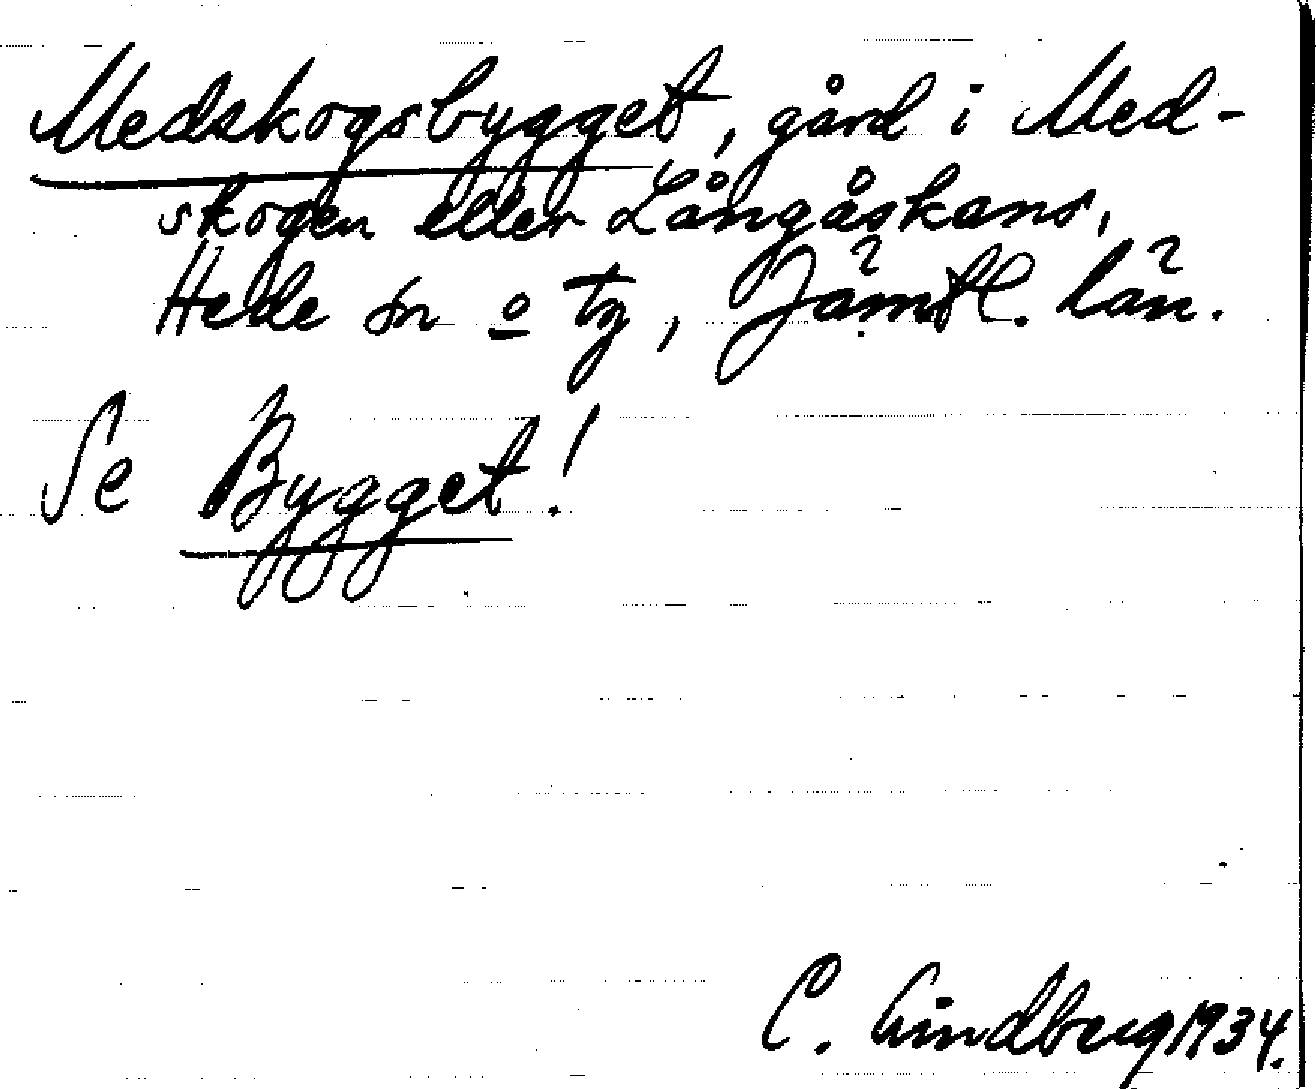 Medskogsbygget, gård i Med-
skogen eller Långåskans,
Hede sn o tg, Jämtl. län.
Se Bygget!
C. Lindberg 1934.